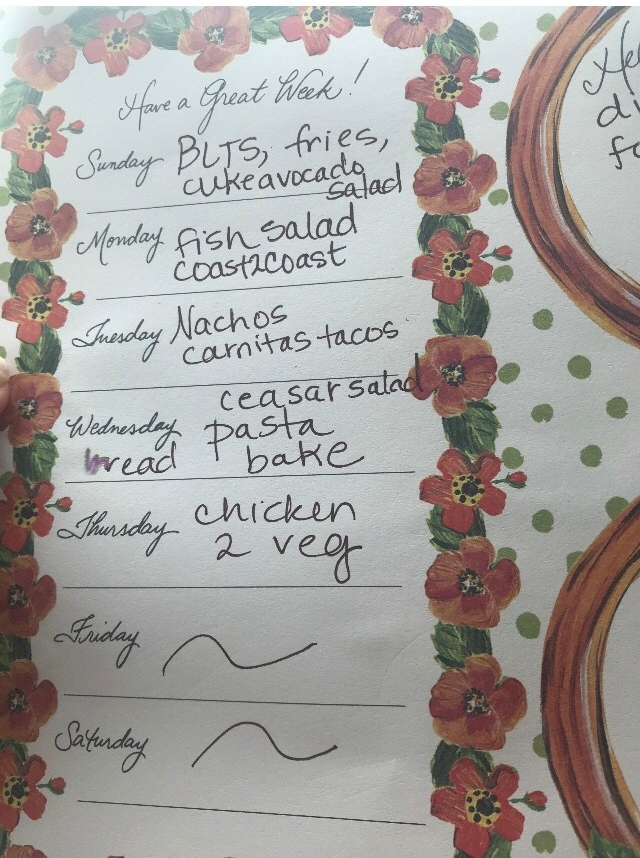 Have a Great Week!
Sunday BLTS, fries,
cukeavocado
salad
Monday fish salad
coast2coast
Tuesday Nachos
carnitas tacos
ceasar salad
Wednesday pasta
bread bake
Thursday chicken
2 veg
Friday
Saturday